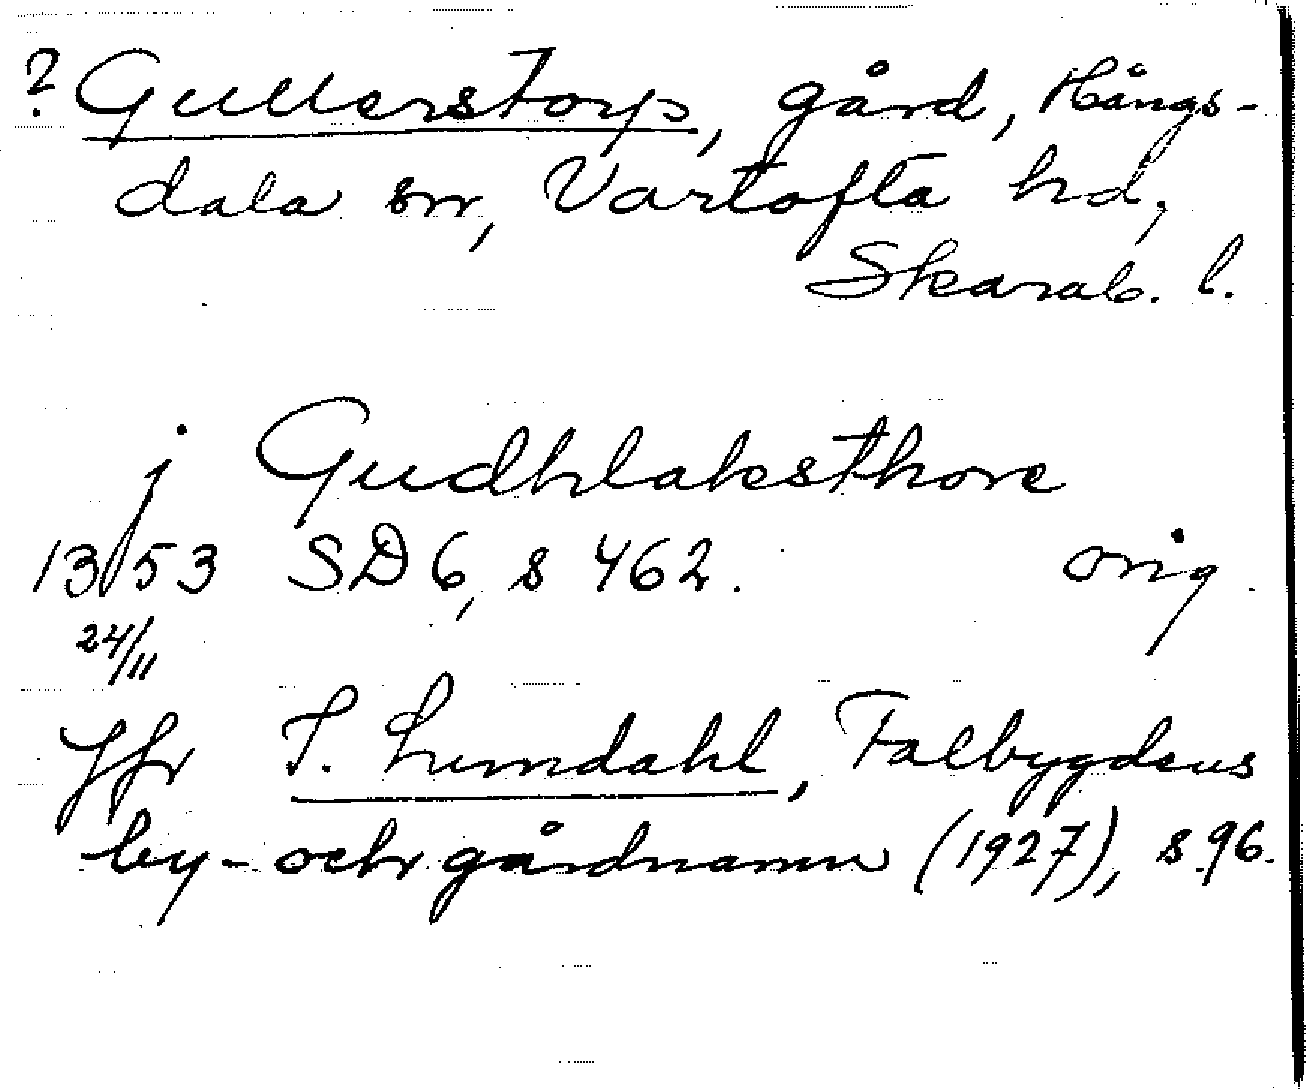 ? Gullerstorp, gård, Hångs-
dala sn, Vartofta hd,
Skarab. l.
j Gudhlaksthore
1353 SD 6, s 462. orig.
24/11
Jfr I. Lundahl, Falbygdens
by- och gårdnamn (1927), s. 96.